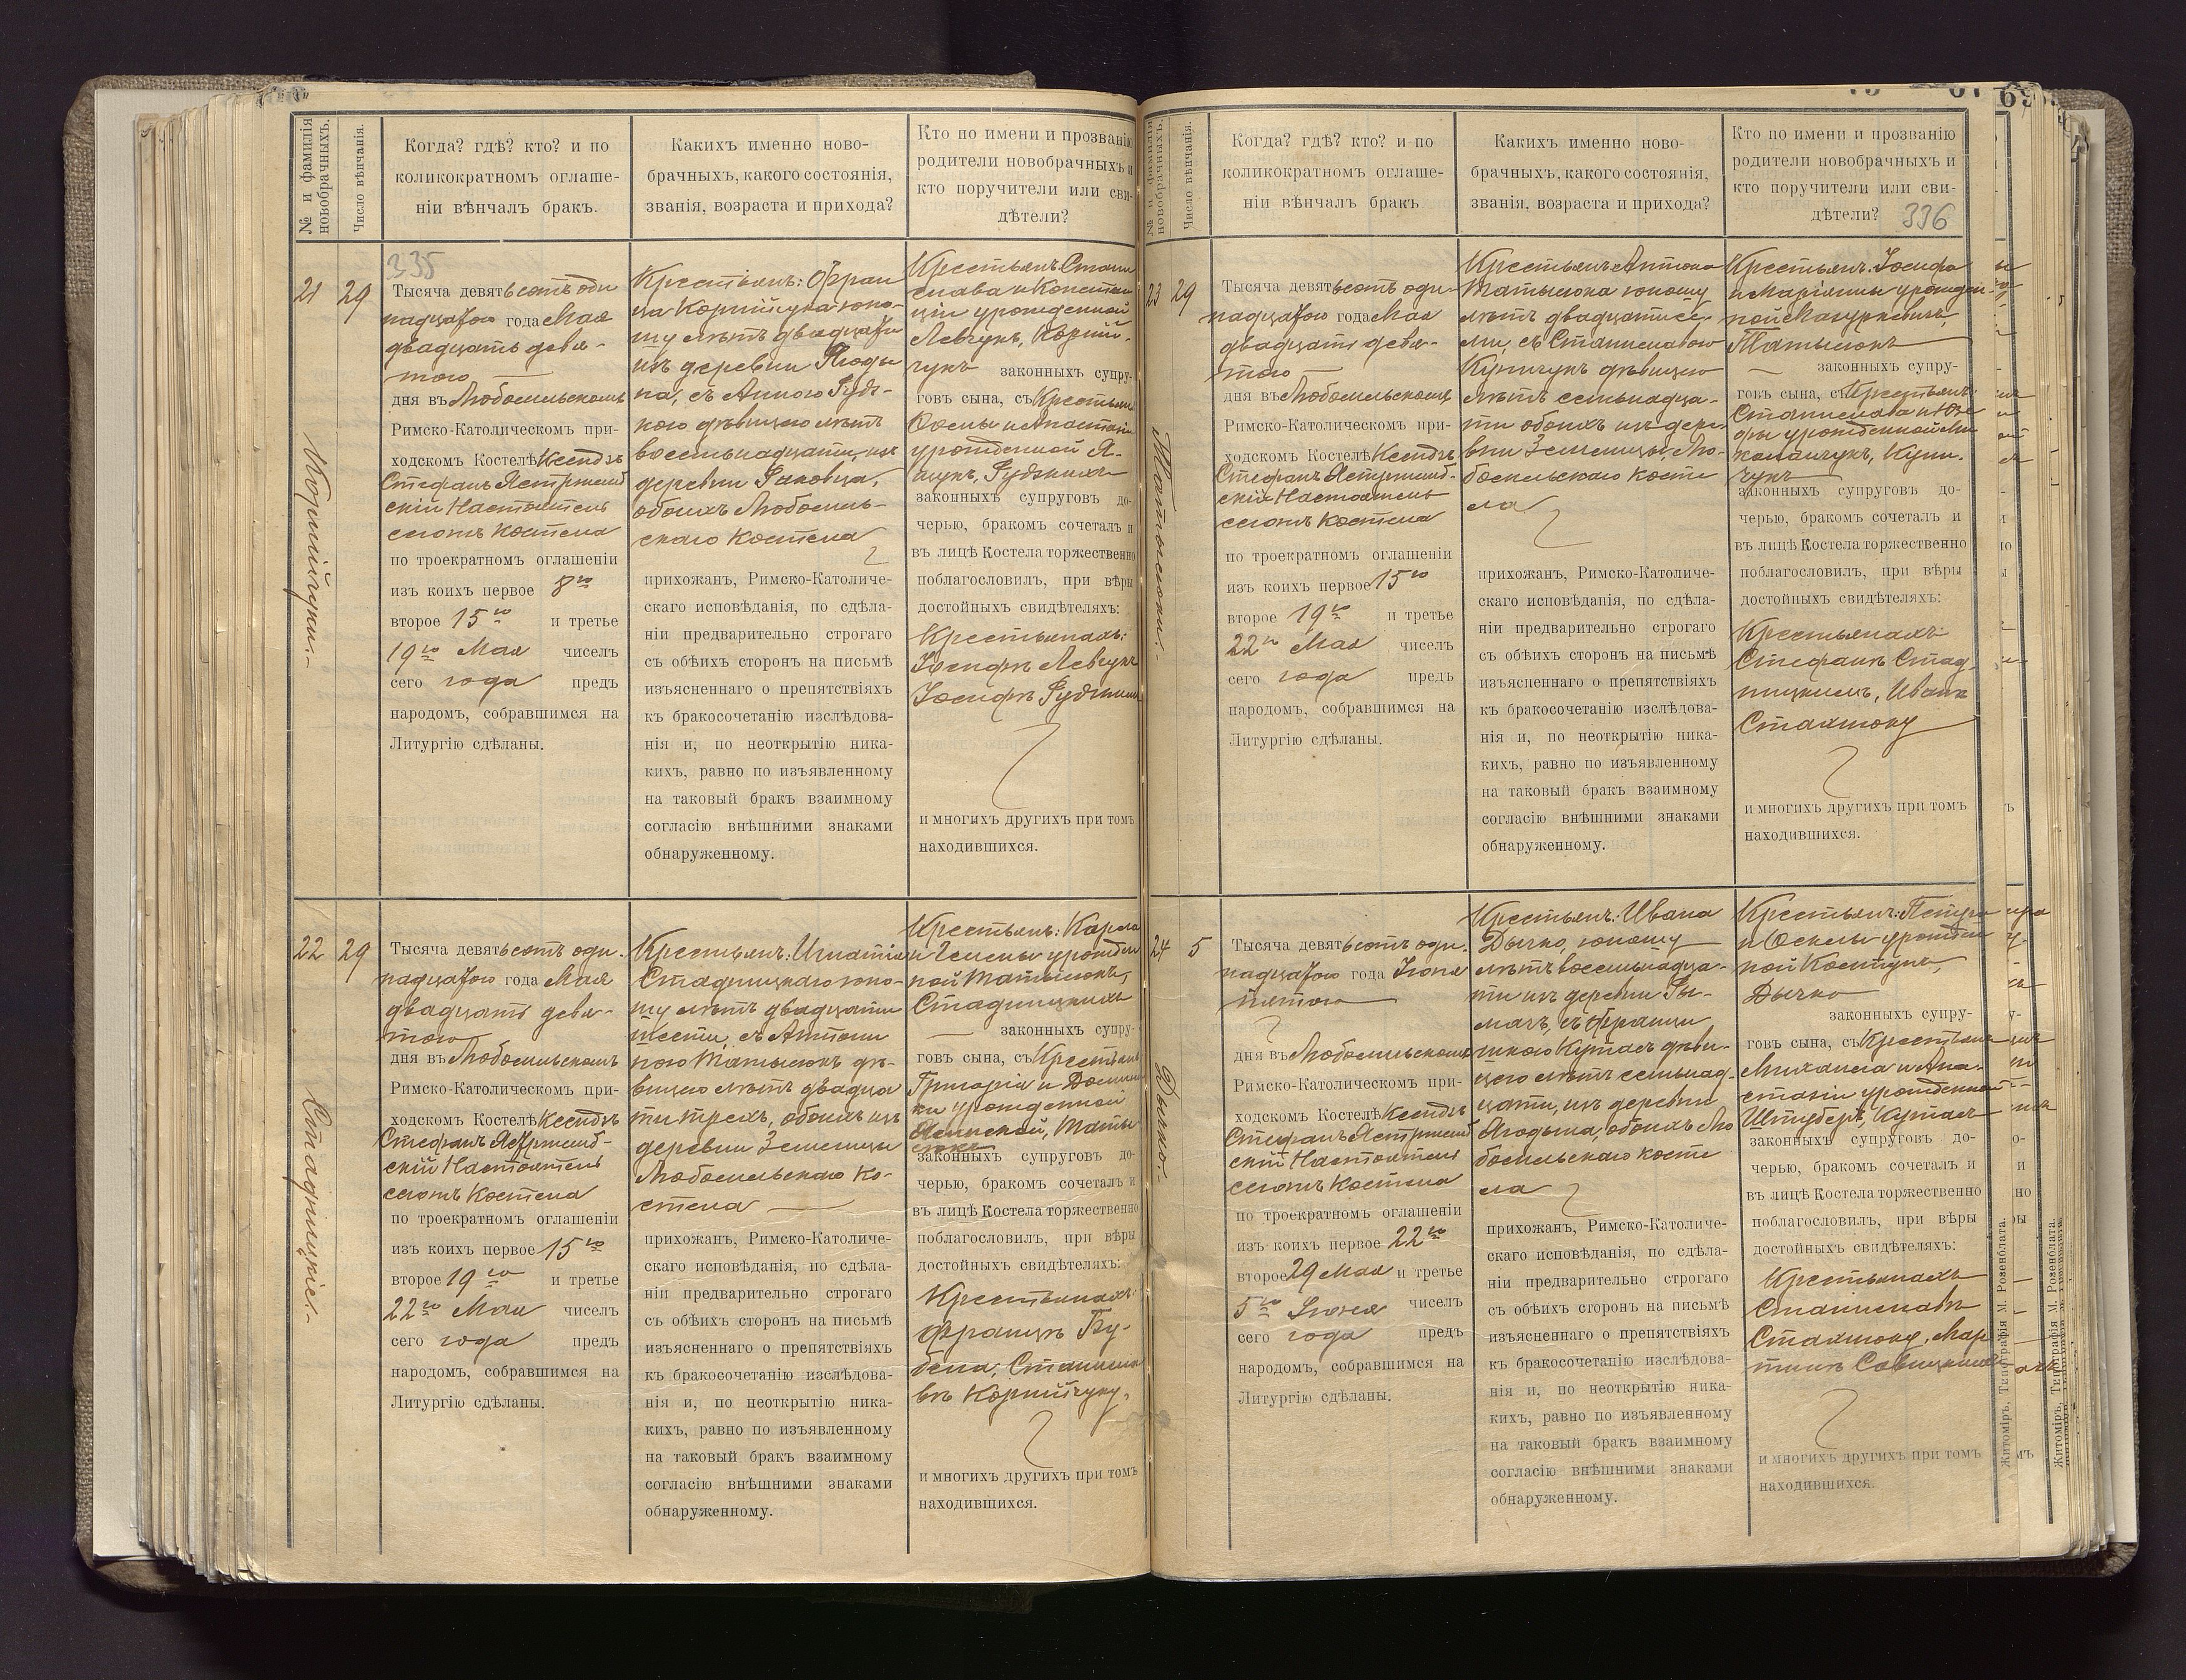 № и фамилія
новобрачныхъ.
Число вѣнчанія.
Когда? гдѣ? кто? и по
коликократномъ оглаше-
ніи вѣнчалъ бракъ.
Какихъ именно ново-
брачныхъ, какого состоянія,
званія, возраста и прихода?
Кто по имени и прозванію
родители новобрачныхъ и
кто поручители или сви-
дѣтели?
21
29
Корнійчуки.
335
Тысяча девятьсотъ оди
надцатого года Мая
двадцать девя-
того
дня въ Любомльскомъ
Римско-Католическомъ при-
ходскомъ Костелѣ Ксендзъ
Стефанъ Ястржемб-
скій Настоятель
сегожъ Костела
по троекратномъ оглашеніи
изъ коихъ первое 8го
второе 15го и третье
19го Мая чиселъ
сего года предъ
народомъ, собравшимся на
Литургію сдѣланы.
Крестьянъ: Фран
ца Корнійчука юно-
шу лѣтъ двадцати
изъ деревни Ягоды
на, съ Анною Рудз-
кою дѣвицею лѣтъ
восемьнадцати, изъ
деревни
обоихъ Любомль-
скаго Костела
прихожанъ, Римско-Католиче-
скаго исповѣданія, по сдѣла-
ніи предварительно строгаго
съ обѣихъ сторонъ на письмѣ
изъясненнаго о препятствіяхъ
къ бракосочетанію изслѣдова-
нія и, по неоткрытію ника-
кихъ, равно по изъявленному
на таковый бракъ взаимному
согласію внѣшними знаками
обнаруженному.
Крестьянъ Стани
слава и Констан
ціи урожденной
Левчукъ, Корній-
чукъ законныхъ супру-
говъ сына, съ Крестьянъ
и Анастасіи
урожденной
Рудзкихъ
законныхъ супруговъ до-
черью, бракомъ сочеталъ и
въ лицѣ Костела торжественно
поблагословилъ, при вѣры
достойныхъ свидѣтеляхъ:
Крестьянахъ:
Іосифѣ Левчукъ
Іосифѣ Рудзкимъ
и многихъ другихъ при томъ
находившихся.
22
29
Стадницкіе.
Тысяча девятьсотъ оди-
надцатого года Мая
двадцать девя-
того
дня въ Любомльскомъ
Римско-Католическомъ при-
ходскомъ Костелѣ Ксендзъ
Стефанъ Ястржемб-
скій Настоятель
сегожъ Костела
по троекратномъ оглашеніи
изъ коихъ первое 15го
второе 19го и третье
22го Мая чиселъ
сего года предъ
народомъ, собравшимся на
Литургію сдѣланы.
Крестьянъ: Игнатія
Стадницкаго юно-
шу лѣтъ двадцати
шести, съ Антони
ною Матысюкъ дѣ-
вицею лѣтъ двадца
ти трехъ, обоихъ изъ
деревни Землицы
Любомльскаго Ко-
стела
прихожанъ, Римско-Католиче-
скаго исповѣданія, по сдѣла-
ніи предварительно строгаго
съ обѣихъ сторонъ на письмѣ
изъясненнаго о препятствіяхъ
къ бракосочетанію изслѣдова-
нія и, по неоткрытію ника-
кихъ, равно по изъявленному
на таковый бракъ взаимному
согласію внѣшними знаками
обнаруженному.
Крестьянъ: Карла
и Елены урожден
ной Матысюкъ,
Стадницкихъ
законныхъ супру-
говъ сына, съ Крестьянъ
Григорія и Домини
ки урожденной
Маты
сюкъ
законныхъ супруговъ до-
черью, бракомъ сочеталъ и
въ лицѣ Костела торжественно
поблагословилъ, при вѣры
достойныхъ свидѣтеляхъ:
Крестьянахъ:
Францѣ Бу-
бела, Станисла
вѣ Корнійчуку,
и многихъ другихъ при томъ
находившихся.
69
№ и фамилія
новобрачныхъ.
Число вѣнчанія.
Когда? гдѣ? кто? и по
коликократномъ оглаше-
ніи вѣнчалъ бракъ.
Какихъ именно ново-
брачныхъ, какого состоянія,
званія, возраста и прихода?
Кто по имени и прозванію
родители новобрачныхъ и
кто поручители или сви-
дѣтели? 336
23
29
Матысюки.
Тысяча девятьсотъ оди-
надцатого года Мая
двадцать девя-
того
дня въ Любомльскомъ
Римско-Католическомъ при-
ходскомъ Костелѣ Ксендзъ
Стефанъ Ястржемб-
скій Настоятель
сегожъ Костела
по троекратномъ оглашеніи
изъ коихъ первое 15го
второе 19го и третье
22го Мая чиселъ
сего года предъ
народомъ, собравшимся на
Литургію сдѣланы.
Крестьянъ Антона
Матысюка юношу
лѣтъ двадцати се-
ми, съ Станиславою
дѣвицею
лѣтъ семьнадца-
ти обоихъ изъ дере-
вни Землицы, Лю-
бомльскаго Косте
ла
прихожанъ, Римско-Католиче-
скаго исповѣданія, по сдѣла-
ніи предварительно строгаго
съ обѣихъ сторонъ на письмѣ
изъясненнаго о препятствіяхъ
къ бракосочетанію изслѣдова-
нія и, по неоткрытію ника-
кихъ, равно по изъявленному
на таковый бракъ взаимному
согласію внѣшними знаками
обнаруженному.
Крестьянъ: Іосифа
и Маріянны урожден-
ной Мазуркевичъ,
Матысюкъ
законныхъ супру-
говъ сына, съ Крестьянъ:
Станислава и Юзе
фы урожденной
законныхъ супруговъ до-
черью, бракомъ сочеталъ и
въ лицѣ Костела торжественно
поблагословилъ, при вѣры
достойныхъ свидѣтеляхъ:
Крестьянахъ:
Стефанѣ Стад-
ницкимъ, Иванѣ
Стахнюку
и многихъ другихъ при томъ
находившихся.
24
5
Дычко.
Тысяча девятьсотъ оди-
надцатого года Іюня
пятого
дня въ Любомльскомъ
Римско-Католическомъ при-
ходскомъ Костелѣ Ксендзъ
Стефанъ Ястржемб
скій Настоятель
сегожъ Костела
по троекратномъ оглашеніи
изъ коихъ первое 22го
второе 29 Мая и третье
5го Іюня чиселъ
сего года предъ
народомъ, собравшимся на
Литургію сдѣланы.
Крестьянъ: Ивана
Дычко, юношу
лѣтъ восемьнадца-
ти изъ деревни Ры-
мачъ, съ Франци
шкою Кутасъ дѣви-
цею лѣтъ семьнад-
цати, изъ деревни
Ягодына, обоихъ Лю
бомльскаго Косте
ла
прихожанъ, Римско-Католиче-
скаго исповѣданія, по сдѣла-
ніи предварительно строгаго
съ обѣихъ сторонъ на письмѣ
изъясненнаго о препятствіяхъ
къ бракосочетанію изслѣдова-
нія и, по неоткрытію ника-
кихъ, равно по изъявленному
на таковый бракъ взаимному
согласію внѣшними знаками
обнаруженному.
Крестьянъ: Петра
и урожден
ной
Дычко
законныхъ супру-
говъ сына, съ Крестьянъ
Михаила и Ана-
стасіи урожденной
Штуберъ, Кутасъ
законныхъ супруговъ до-
черью, бракомъ сочеталъ и
въ лицѣ Костела торжественно
поблагословилъ, при вѣры
достойныхъ свидѣтеляхъ:
Крестьянахъ
Станиславѣ
Стахнюку, Мар
тинѣ Савицкимъ
и многихъ другихъ при томъ
находившихся.
Житоміръ, Типографія М. Розенблата.
Житоміръ, Типографія М. Розенблата.